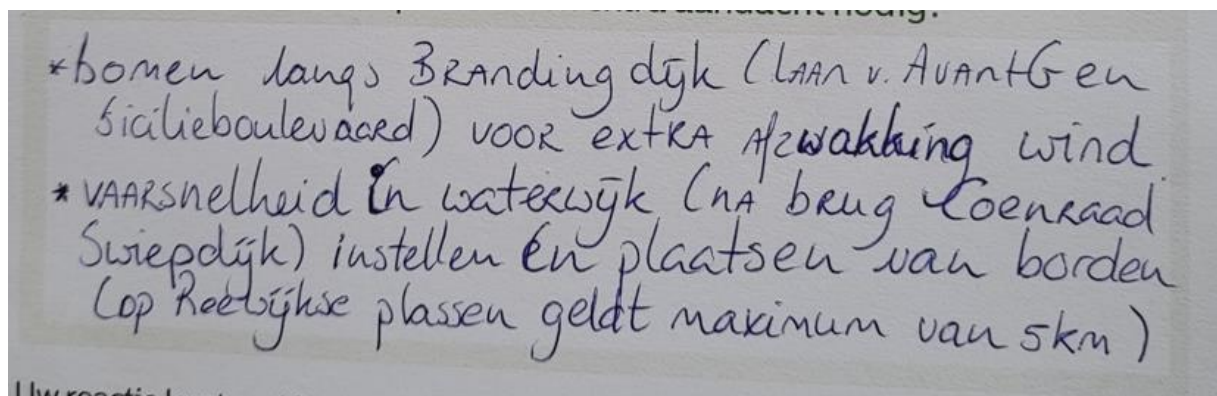 extra aandacht nodig?
*bomen langs Brandingdijk (Laan v. Avant-G en
Sicilieboulevaard) voor extra afzwakking wind
* Vaarsnelheid in waterwijk (na brug Coenraad
Swiepdijk) instellen én plaatsen van borden
(op Reewijkse plassen geldt maximum van 5km)
Uw reactie